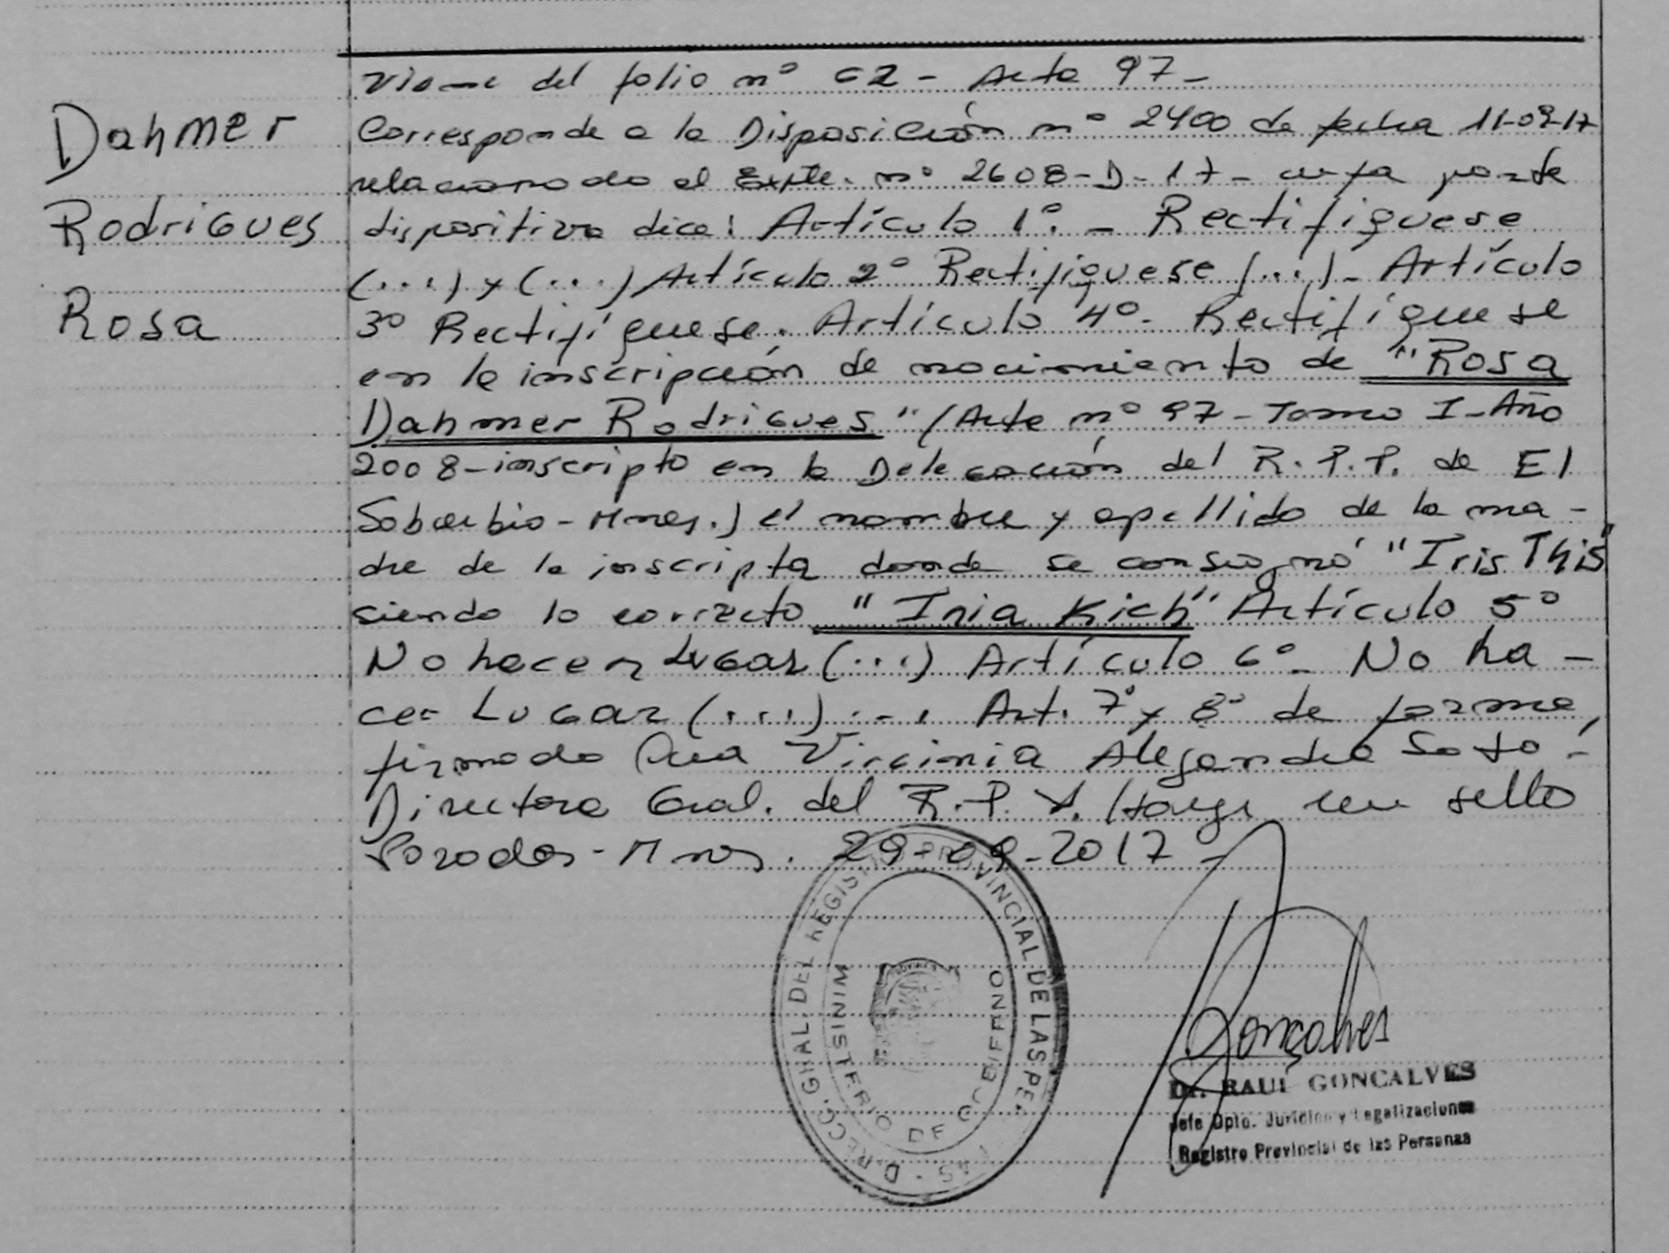 Dahmer
Rodrigues
Rosa
Viene del folio nº 62 - Acta 97 -
Corresponde a la Disposición nº 2400 de fecha 11-09-17
relacionado al Expte. nº 2608-D-17- cuya parte
dispositiva dice: Artículo 1º. - Rectifíquese
(...) y (...) Artículo 2º Rectifíquese (...) - Artículo
3º Rectifíquese. Artículo 4º- Rectifíquese
en la inscripción de nacimiento de "Rosa
Dahmer Rodrigues" (Acta nº 97 - Tomo I - Año
2008 - inscripto en la Delegación del R.P.P. de El
Soberbio - Mnes.) el nombre y apellido de la ma-
dre de la inscripta donde se consignó "Iris This"
siendo lo correcto "Inia Kich" Artículo 5º
No hacer Lugar (...) Artículo 6º- No ha-
cer Lugar (...) ... Art. 7º y 8º de forma,
firmado Virginia Alejandra Soto -
Directora Gral. del R.P.P. Hay un sello
Posadas - Mnes. 29-09-2017 -
DIRECC. GRAL. DEL REGISTRO PROVINCIAL DE LAS PERSONAS
MINISTERIO DE GOBIERNO
Gonçalves
Dr. RAUL GONCALVES
Jefe Dpto. Jurídico y Legalizaciones
Registro Provincial de las Personas